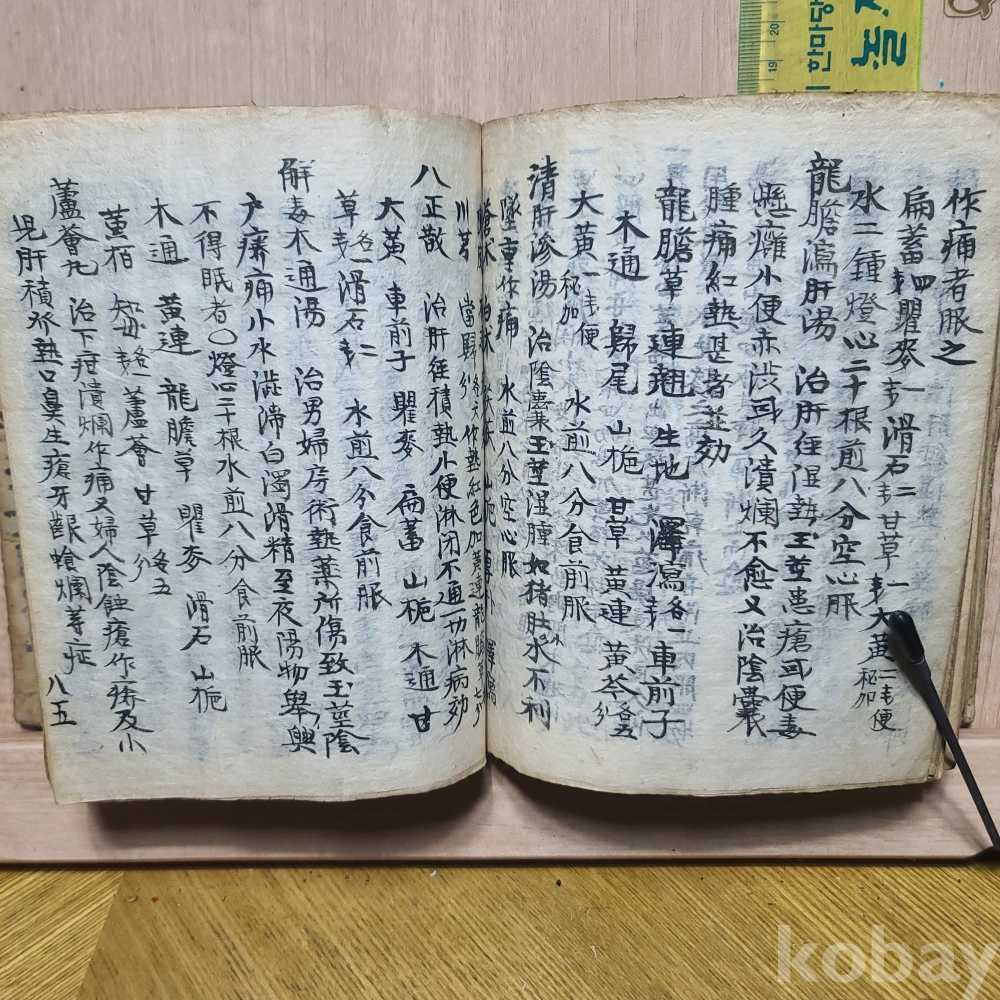 作痛者服之
扁蓄 四 瞿麥 一 滑石 二 甘草 一 大黃 二 便秘加
水二鍾燈心二十根煎八分空心服
龍膽瀉肝湯 治肝経湿熱玉莖患瘡或便毒
懸癰小便赤澁或久潰爛不愈又治陰囊
腫痛紅熱甚者並効
龍膽草 連翹 生地 澤瀉 各一 車前子
木通 歸尾 山梔 甘草 黃連 黃芩 各五分
大黃 一 便秘加 水煎八分食前服
清肝渗湯 治陰囊玉莖湿腫如猪肚 小水不利
墜重作痛 水煎八分空心服
川芎 當歸
八正散 治肝経積熱小便淋闭不通一切淋病効
大黃 車前子 瞿麥 扁蓄 山梔 木通 甘
草 各一 滑石 二 水煎八分食前服
解毒木通湯 治男婦房術熱薬所傷致玉莖陰
户痒痛小水澁滞白濁滑精至夜陽物舉興
不得眠者〇燈心二十根水煎八分食前服
木通 黃連 龍膽草 瞿麥 滑石 山梔
黃栢 知母 各 蘆薈 甘草 各五
蘆薈丸 治下疳潰爛作痛又婦人陰蝕瘡作痒及小
児肝積發熱口鼻生瘡牙齦蝕爛等症
八五
놀
한마당
20
19
kobay